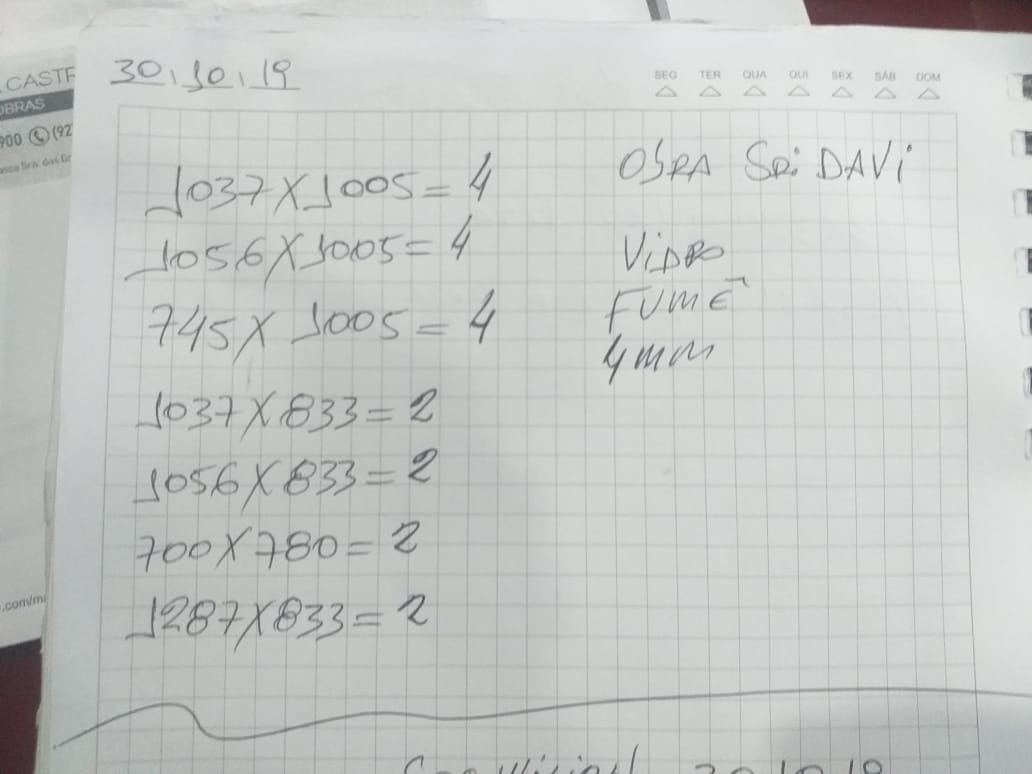 CAST
OBRAS
900 (92
.com/m
30.10.19
SEG TER QUA QUI SEX SÁB DOM
1037X1005=4
1056X1005=4
745X1005=4
1037X833=2
1056X833=2
700X780=2
1287X833=2
OBRA SR: DAVI
VIDRO
FUMÊ
4mm